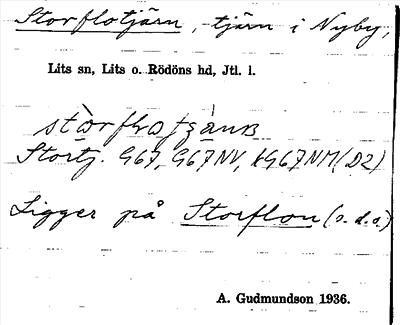 Storflotjärn, tjärn i Nyby,
Lits sn, Lits o. Rödöns hd, Jtl. l.
Stortj. G67, G67NV, kG67NM(D2)
Ligger på Storflon (s.d.o.)
A. Gudmundson 1936.